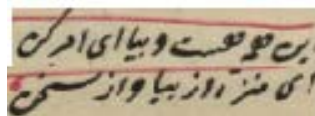 این همه هست و بیا ای امر کن
ای منزه از بیا و از سخن